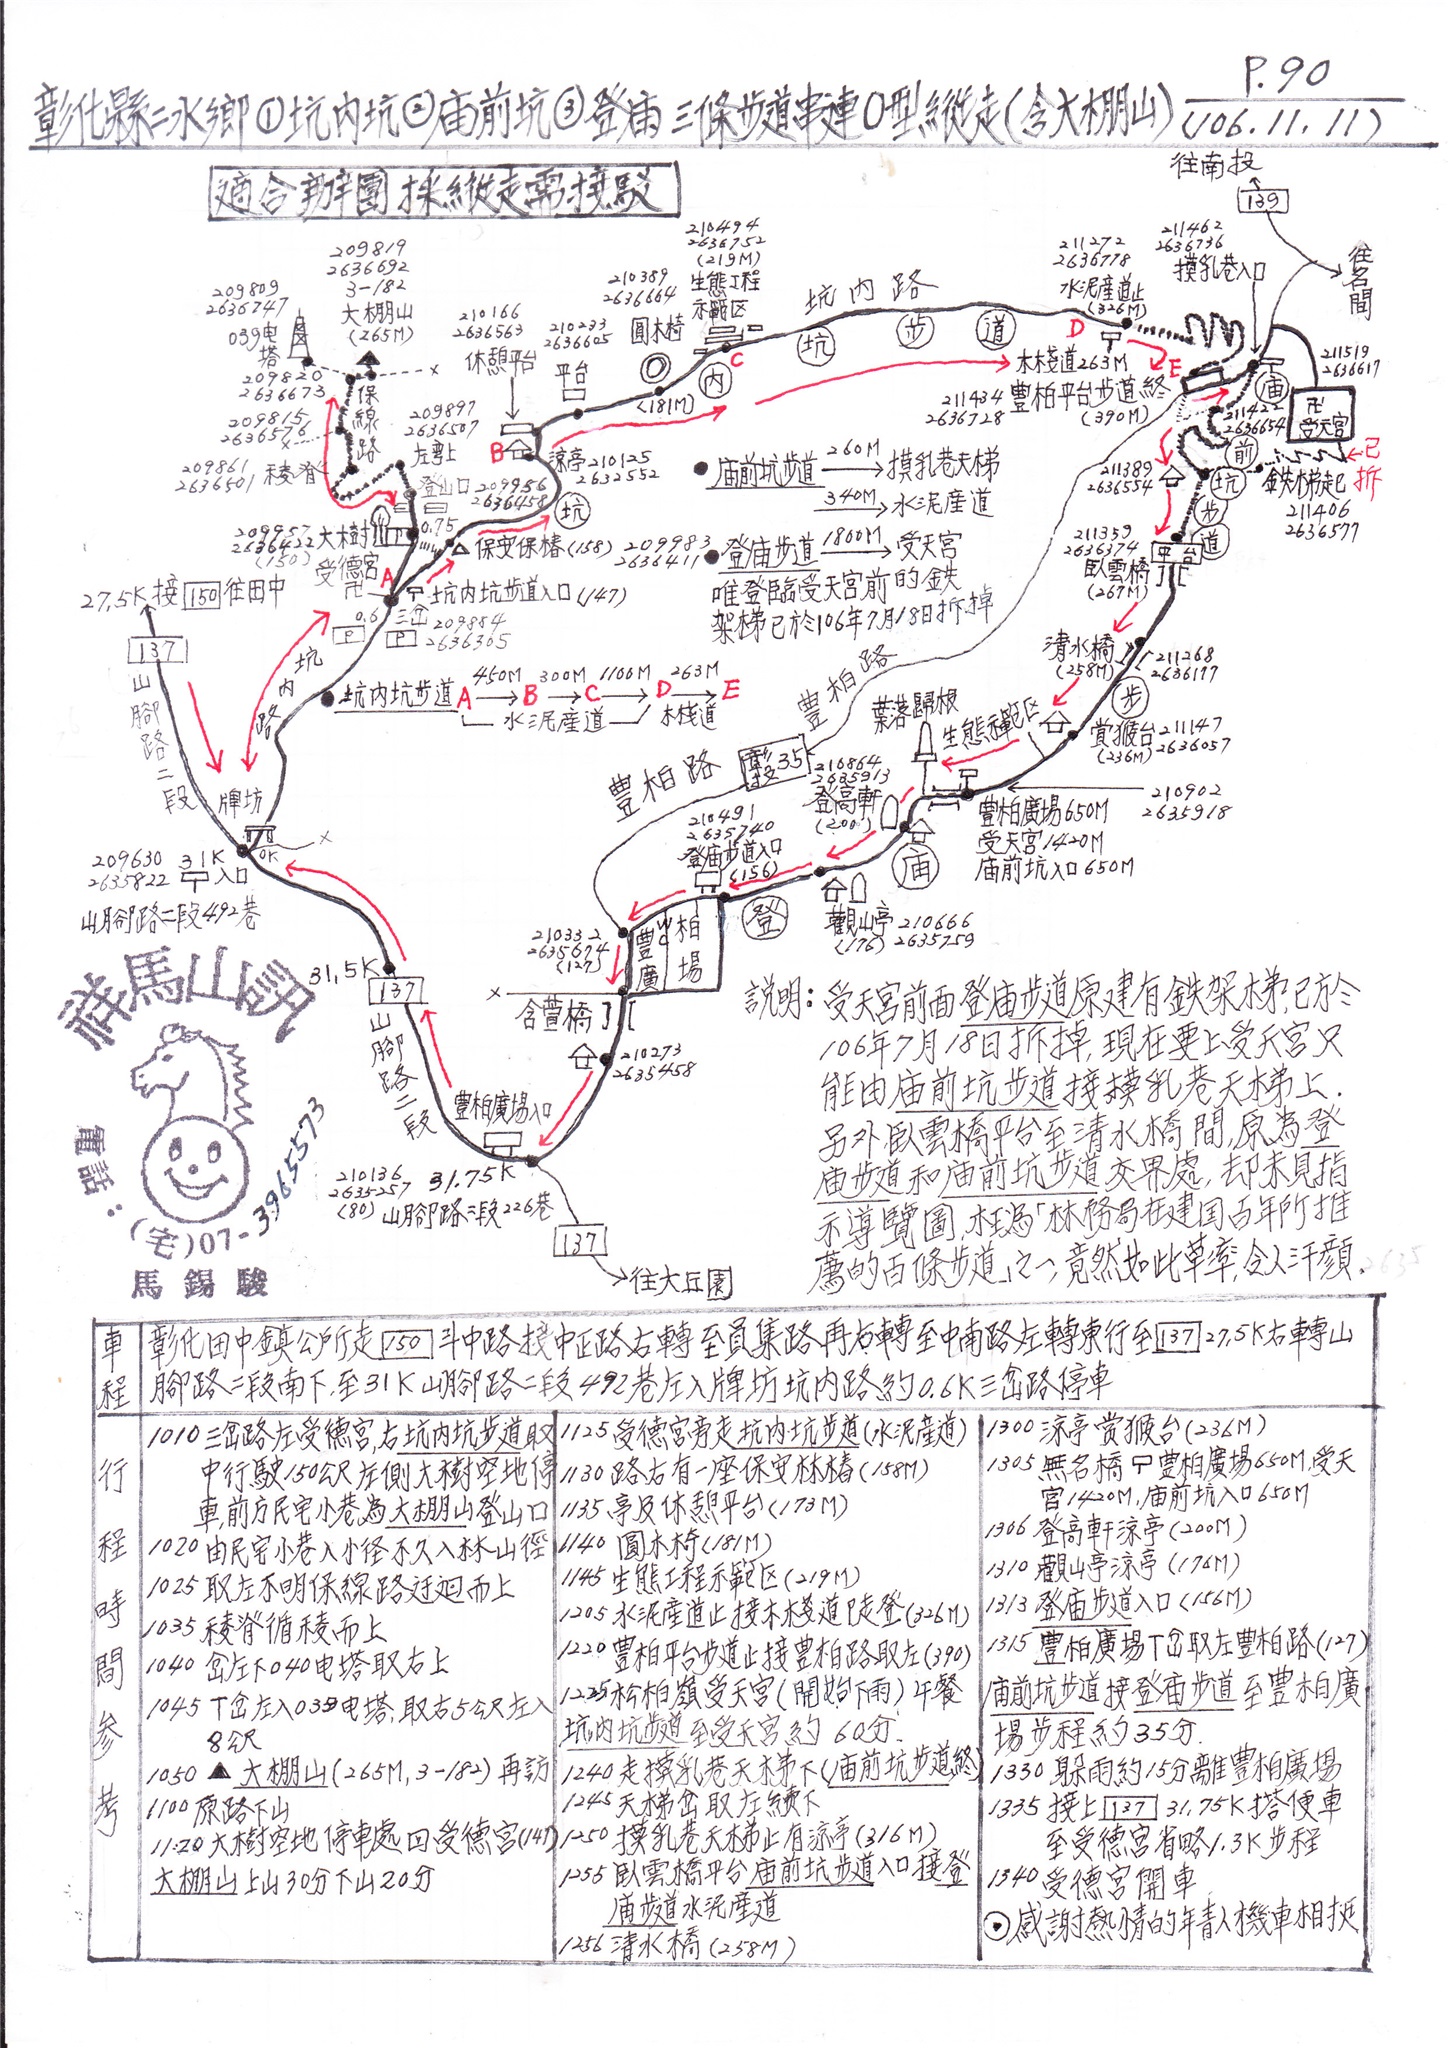 P.90
彰化縣二水鄉①坑內坑②庙前坑③登庙三條步道串連O型縱走(含大棚山)
(106.11.11)
適合辦團採縱走需接駁
往南投
139
往名間
209819
2636692
3-182
大棚山
(265M)
209809
2636747
039电塔
209820
2636673
209815
2636576
209861
2636501
稜脊
保線路
210166
2636563
休憩平台
210233
2636605
平台
210389
2636664
圓木椅
(181M)
210494
2636752
(219M)
生態工程
示範区
C
坑內路
坑內坑步道
211272
2636778
水泥產道止
(326M)
D
211462
2636736
摸乳巷入口
E
木棧道263M
豊柏平台步道終
(390M)
211434
2636728
211519
2636617
卍
受天宮
已拆
鉄梯起
211406
2636577
211422
2636654
庙前坑步道
211389
2636554
211359
2636374
平台
臥雲橋
(267M)
清水橋
(258M)
211268
2636177
賞猴台
(236M)
211147
2636057
209897
2636507
左彎上
登山口
209956
2636458
B
涼亭
210125
2632552
209957
2636422
(150)
大樹
P
0.75
受德宮
卍
A
保安保樁(158)
209983
2636411
坑內坑步道入口(147)
三岔
209884
2636305
0.6
P
P
●庙前坑步道 260M→摸乳巷天梯
340M→水泥産道
●登庙步道 1800M→受天宮
唯登臨受天宮前的鉄
架梯已於106年7月18日拆掉
27.5K接150往田中
137
山腳路二段
坑內路
●坑內坑步道 A 450M→B 300M→C 1100M→D 263M→E
水泥産道 木棧道
牌坊
0K
209630
2635822
31K
入口
山腳路二段492巷
31.5K
137
山腳路二段
豊柏路
豊柏路
彰投35
葉落歸根
生態示範区
210864
2635913
登高軒
(200)
210902
2635918
豊柏廣場650M
受天宮1420M
庙前坑入口650M
210491
2635740
登庙步道入口
(156)
登庙步
觀山亭
(176)
210666
2635759
210332
2635674
(127)
豊柏廣場
WC
含萱橋
210273
2635458
豊柏廣場入口
210136
2635257
(80)
31.75K
山腳路二段226巷
137
往大丘園
祥馬山訊
電話：(宅)07-3965573
馬錫駿
説明：受天宮前面登庙步道原建有鉄架梯,已於
106年7月18日拆掉,現在要上受天宮只
能由庙前坑步道接摸乳巷天梯上.
另外臥雲橋平台至清水橋間,原為登
庙步道和庙前坑步道交界處,却未見指
示導覽圖,枉為「林務局在建国百年所推
薦的百條步道」之一,竟然如此草率,令人汗顔.
車程
彰化田中鎮公所走150斗中路接中正路右轉至員集路再右轉至中南路左轉東行至137 27.5K右轉山
腳路二段南下,至31K山腳路二段492巷左入牌坊坑內路約0.6K三岔路停車
行程時間參考
1010三岔路左受德宮,右坑內坑步道取
中行駛150公尺左側大樹空地停
車,前方民宅小巷為大棚山登山口
1020 由民宅小巷入小径不久入林山徑
1025 取左不明保線路迂迴而上
1035 稜脊循稜而上
1040 岔左下040电塔取右上
1045 T岔左入039电塔;取右5公尺左入
8公尺
1050 ▲大棚山(265M,3-182)再訪
1100 原路下山
11:20大樹空地停車處回受德宮(147)
大棚山上山30分下山20分
1125 受德宮旁走坑內坑步道(水泥産道)
1130 路右有一座保安林樁(158M)
1135 亭及休憩平台(173M)
1140 圓木椅(181M)
1145 生態工程示範区(219M)
1205 水泥産道止接木棧道陡登(326M)
1220 豊柏平台步道止接豊柏路取左(390)
1225松柏嶺受天宮(開始下雨)午餐
坑內坑步道至受天宮約60分.
1240 走摸乳巷天梯下(庙前坑步道終)
1245 天梯岔取左續下
1250 摸乳巷天梯止有涼亭(316M)
1255 臥雲橋平台庙前坑步道入口接登
庙步道水泥産道
1256 清水橋(258M)
1300 涼亭賞猴台(236M)
1305 無名橋豊柏廣場650M,受天
宮1420M,庙前坑入口650M
1306 登高軒涼亭(200M)
1310 觀山亭涼亭(176M)
1313 登庙步道入口(156M)
1315 豊柏廣場T岔取左豊柏路(127)
庙前坑步道接登庙步道至豊柏廣
場步程約35分.
1330 躲雨約15分離豊柏廣場
1335 接上137 31.75K搭便車
至受德宮省略1.3K步程
1340 受德宮開車
⊙感謝熱情的年輕人機車相挺